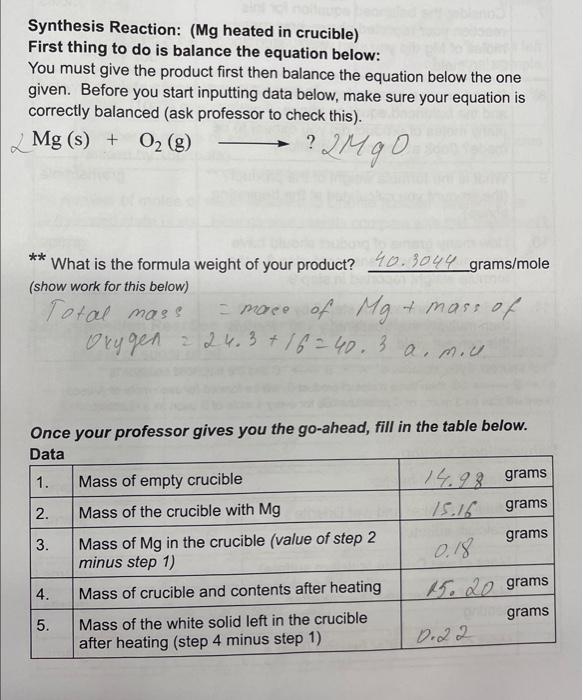 Synthesis Reaction: (Mg heated in crucible)
First thing to do is balance the equation below:
You must give the product first then balance the equation below the one
given. Before you start inputting data below, make sure your equation is
correctly balanced (ask professor to check this).
2 Mg (s) + O₂ (g) ⟶ ? 2MgO
** What is the formula weight of your product? 40.3044 grams/mole
(show work for this below)
Total mass = mace of Mg + mass of
Oxygen = 24.3 + 16 = 40.3 a.m.u
Once your professor gives you the go-ahead, fill in the table below.
Data
1. Mass of empty crucible 14.98 grams
2. Mass of the crucible with Mg 15.16 grams
3. Mass of Mg in the crucible (value of step 2 grams
minus step 1) 0.18
4. Mass of crucible and contents after heating 15.20 grams
5. Mass of the white solid left in the crucible grams
after heating (step 4 minus step 1) 0.22